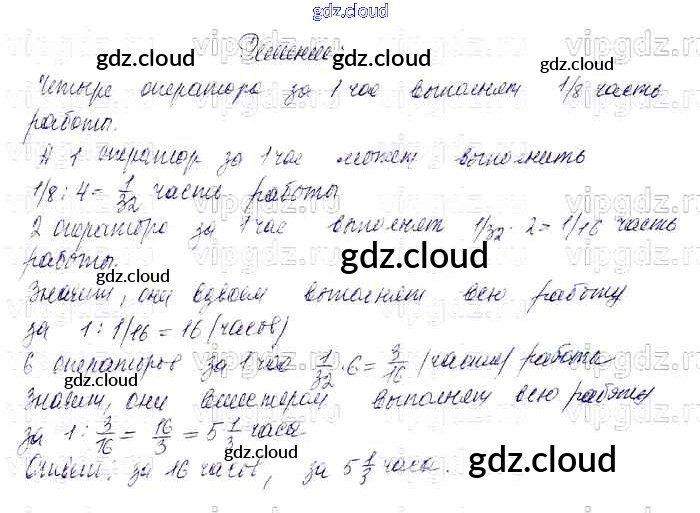 gdz.cloud
Решение:
Четыре оператора за 1 час выполняют 1/8 часть
работы.
А 1 оператор за 1 час может выполнить
1/8 : 4 = 1/32 часть работы
2 оператора за 1 час выполняют 1/32 · 2 = 1/16 часть
работы.
Значит, они вдвоем выполняют всю работу
за 1 : 1/16 = 16 (часов)
6 операторов за 1 час 1/32 · 6 = 3/16 (части) работы
Значит, они вшестером выполняют всю работу
за 1 : 3/16 = 16/3 = 5 1/3 часа
Ответ: за 16 часов, за 5 1/3 часа.
gdz.cloud
gdz.cloud
gdz.cloud
gdz.cloud
gdz.cloud
gdz.cloud
gdz.cloud
gdz.cloud